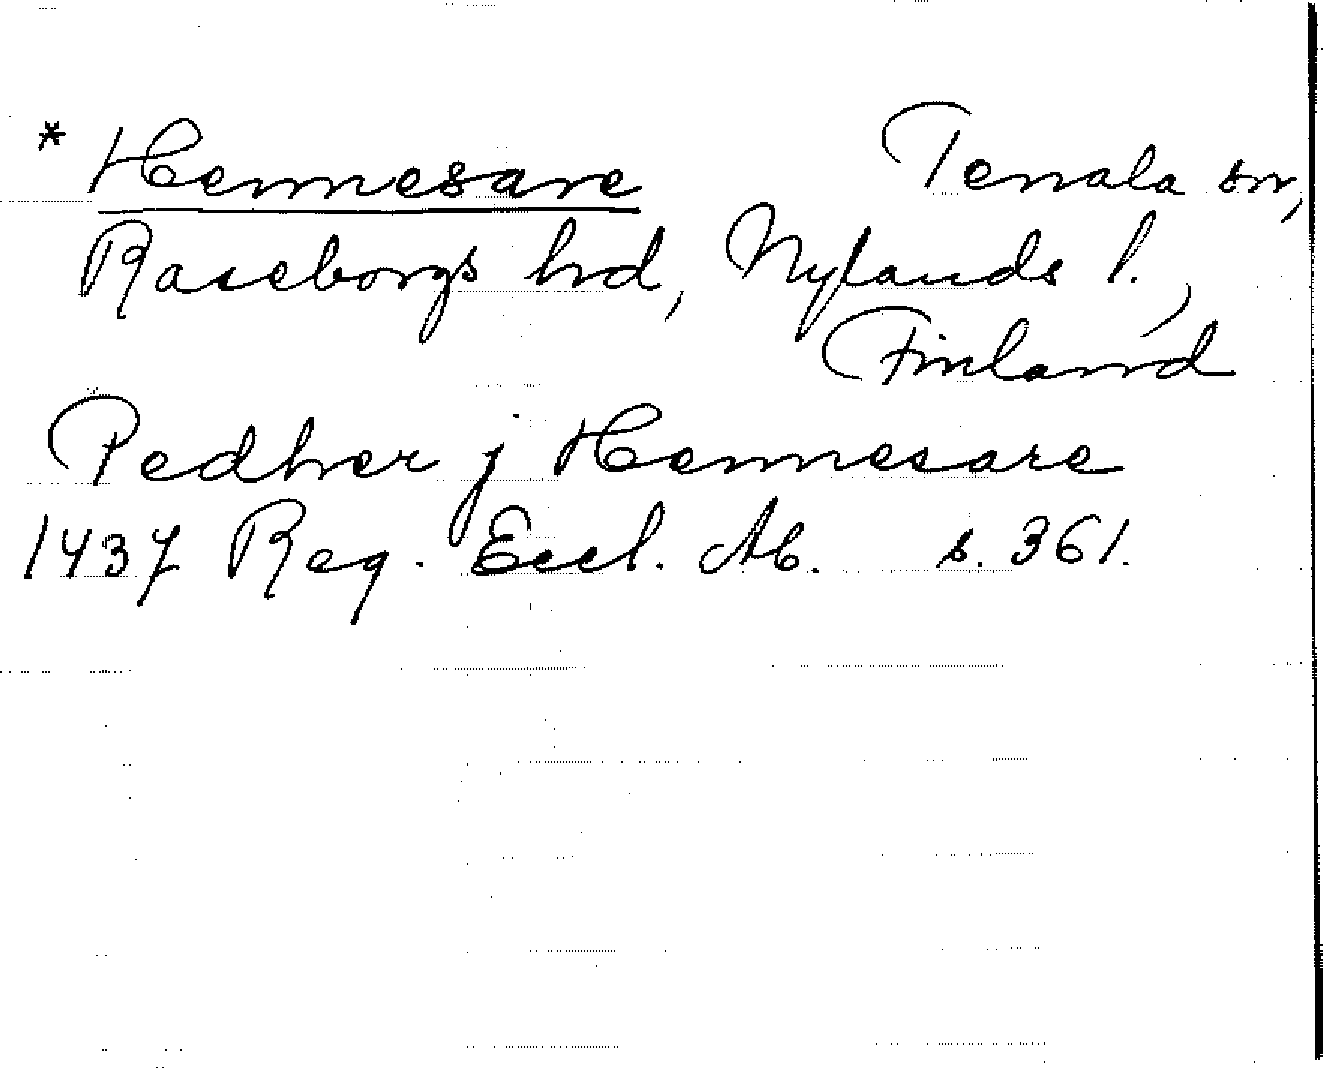 * Hennesare Tenala sn,
Raseborgs hrd, Nylands l.,
Finland
Pedher j Hennesare
1437 Reg. Eccl. Ab. s. 361.